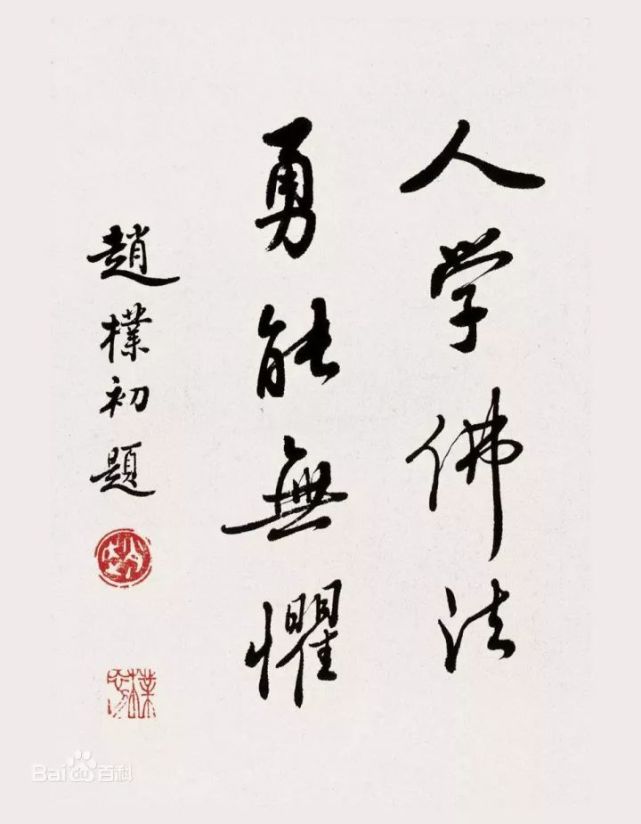 人学佛法
勇能無懼
趙樸初題
Baidu百科